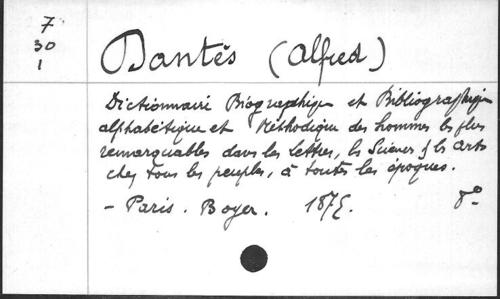 7
30
1
Dantès (Alfred)
Dictionnaire Biographique et Bibliographique
alphabétique et Méthodique des hommes les plus
remarquables dans les lettres, les Sciences & les arts
chez tous les peuples, à toutes les époques.
- Paris. Boyer. 1875. 8°